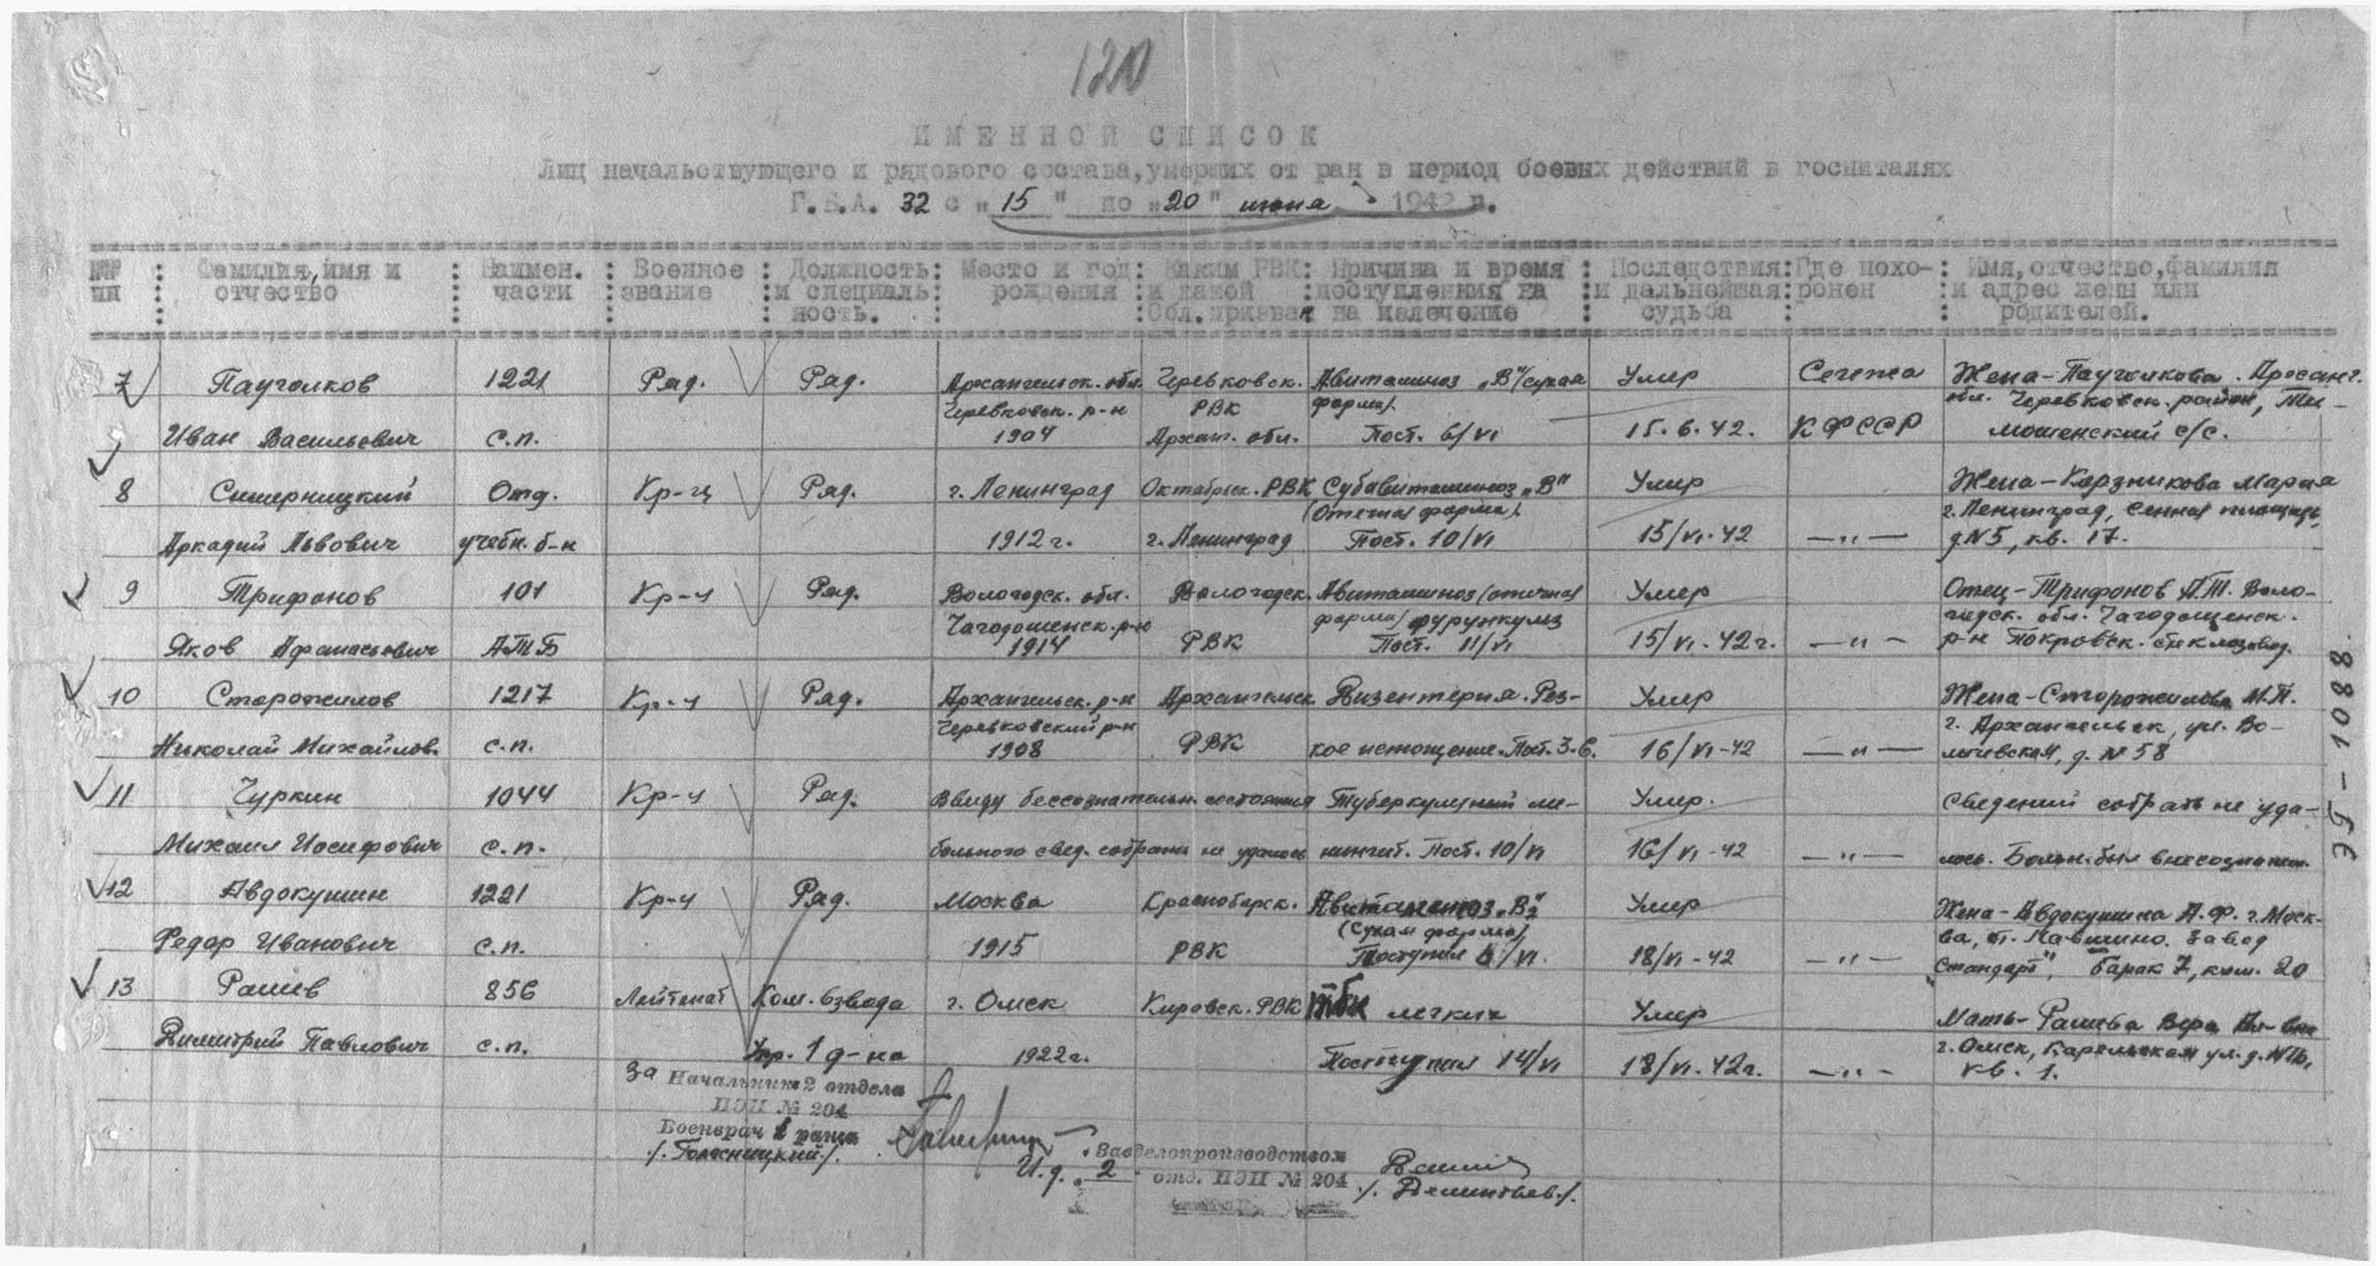 120
ИМЕННОЙ СПИСОК
Лиц начальствующего и рядового состава, умерших от ран в период боевых действий в госпиталях
Г.Б.А. 32 с "15" по "20" июня 1942 г.
№№ пп : Фамилия, имя и отчество : Наимен. части : Военное звание : Должность и специальность. : Место и год рождения : Каким РВК и какой обл. призван : Причина и время поступления на на излечение : Последствия и дальнейшая судьба : Где похоронен : Имя, отчество, фамилия и адрес жены или родителей.
7 Паутолков 1221 Ряд. Ряд. Архангельск. обл. Черевковск. Авитаминоз „В"/сухая Умер Сегежа Жена-Паутолкова. Архангг.
Черевковск. р-н РВК форма/. обл. Черевковск. район, Ти-
Иван Васильевич с.п. 1904 Архан. обл. Пост. 6/VI 15.6.42. КФССР мошенский с/с.
8 Отд. Кр-ц Ряд. г. Ленинград Октябрьск. РВК Субавитаминоз „В" Умер Жена-Корзникова Мария
(Отечная форма). г. Ленинград, Сенная площадь,
Аркадий Львович учебн. б-н 1912 г. г. Ленинград Пост. 10/VI 15/VI-42 —"— д.N5, кв. 17.
9 Трифонов 101 Кр-ц Ряд. Вологодск. обл. Вологодск. Авитаминоз/отечная Умер Отец-Трифонов А.Т. Воло-
Чагодощенск. р-н форма/ фурункулз годск. обл. Чагодощенск.
Яков Афанасьевич АТБ 1914 РВК Пост. 11/VI 15/VI-42 г. —"— р-н Покровск. стеклозавод.
10 Сторожилов 1217 Кр-ц Ряд. Архангельск. р-н Архангельск Дизентерия. Рез- Умер Жена-Сторожилова М.П.
Черевковский р-н г. Архангельск, ул. Во-
Николай Михайлов. с.п. 1908 РВК кое истощение. Пост. 3-6. 16/VI-42 —"— д. № 58
11 Чуркин 1044 Кр-ц Ряд. Ввиду бессознательн. состояния Туберкулезный ме- Умер. Сведений собрать не уда-
Михаил Иосифович с.п. больного свед. собрать не удалось нингит. Пост. 10/VI 16/VI-42 —"— лось. Больн. был
12 Авдокушин 1221 Кр-ц Ряд. Москва Красноборск. Авитаминоз „В2" Умер Жена-Авдокушина А.Ф. г. Моск-
(Сухая форма) ва, п. Завод
Федор Иванович с.п. 1915 РВК Поступил 6/VI. 18/VI-42 —"— „Стандарт", барак 7, ком. 20
13 Рашев 856 Лейтенат Ком. взвода г. Омск Кировск. РВК ТБК легких Умер Мать-Рашева Вера
Димитрий Павлович с.п. Упр. 1 д-на 1922 г. Поступил 14/VI 18/VI-42 г. —"— г. Омск, Карельская ул. д.
кв. 1.
За Начальник 2 отдела
ПЭП № 204
Военврач 2 ранга
/. Голосницкий/.
И.д. 2 Завделопроизводством
отд. ПЭП № 204
/. Дементьев./.
36-1088.